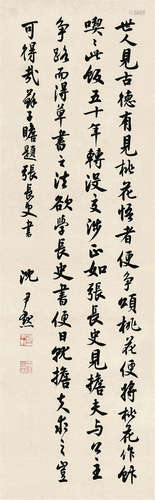 世人見古德有見桃花悟者便爭頌桃花便將桃花作飰
喫〻此飯五十年轉没交涉正如張長史見擔夫與公主
爭路而得草書之法欲學長史書便日就擔夫求之豈
可得哉蘇子瞻題張長史書
沈尹默